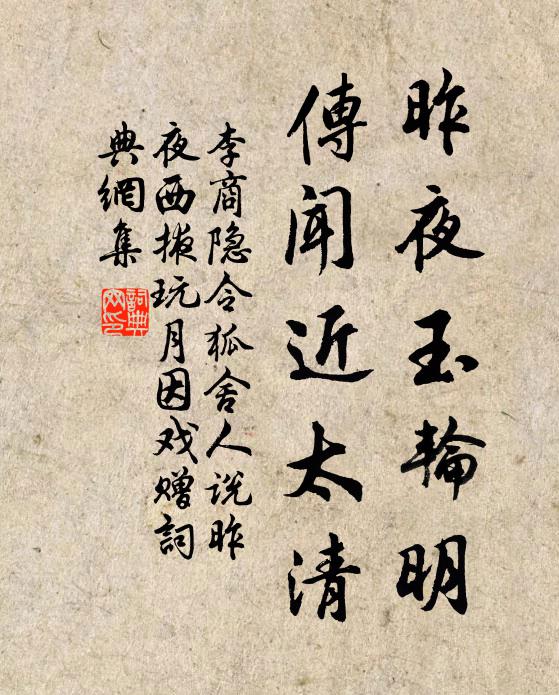 昨夜玉輪明
傳聞近太清
李商隐令狐舍人说昨
夜西掖玩月因戏赠詞
典網集
詞典
网印